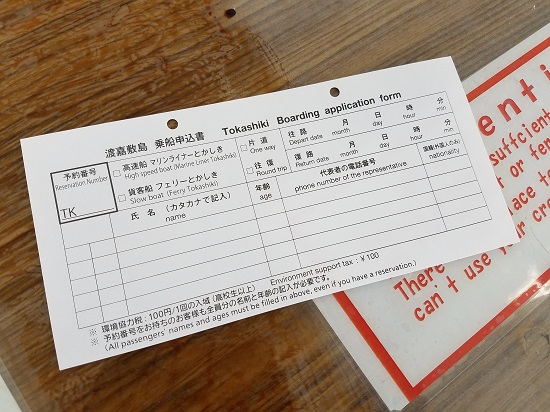 渡嘉敷島 乗船申込書 Tokashiki Boarding application form
予約番号
Reservation Number
TK
□ 高速船 マリンライナーとかしき
High speed boat (Marine Liner Tokashiki)
□ 貨客船 フェリーとかしき
Slow boat (Ferry Tokashiki)
□ 片道
One way
□ 往復
Round trip
往路 月 日 時 分
Depart date month day hour min
復路 月 日 時 分
Return date month day hour min
氏名 (カタカナで記入)
name
年齢
age
代表者の電話番号
phone number of the representative
国籍(外国人のみ)
nationality
※ 環境協力税:100円/1回の入域(高校生以上) Environment support tax : ¥100
※ 予約番号をお持ちのお客様も全員分の名前と年齢の記入が必要です。
(All passengers' names and ages must be filled in above, even if you have a reservation.)
enti
suffcient
or fe
lace to
There
can't use your cre